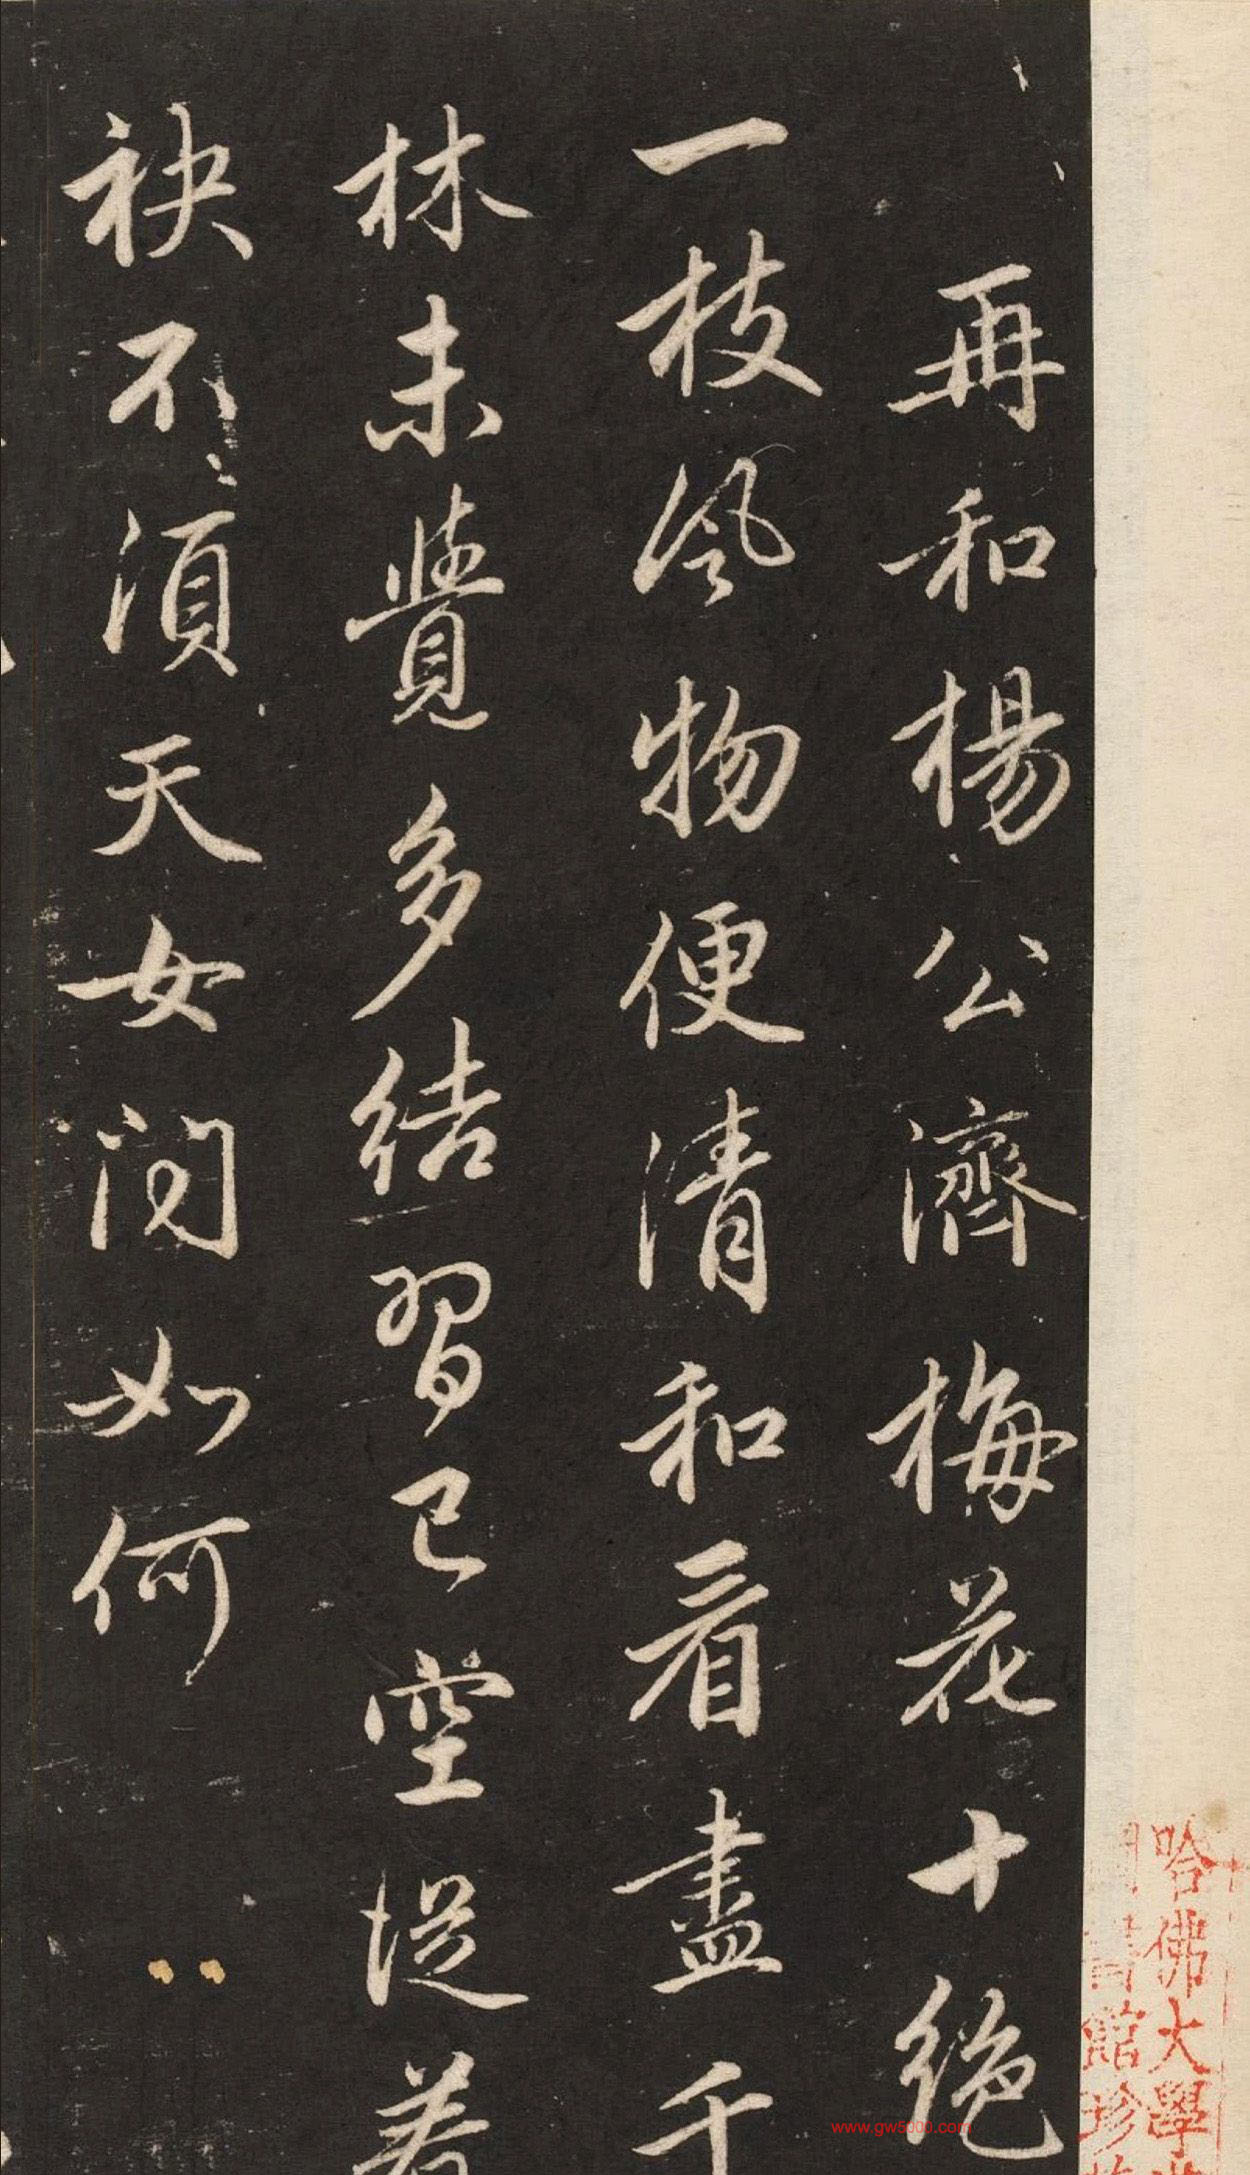 再和楊公濟梅花十絕
一枝風物便清和看盡千
林未覺多結習已空從著
袂不須天女問如何
哈佛大學
書館珍
www.gw5000.com